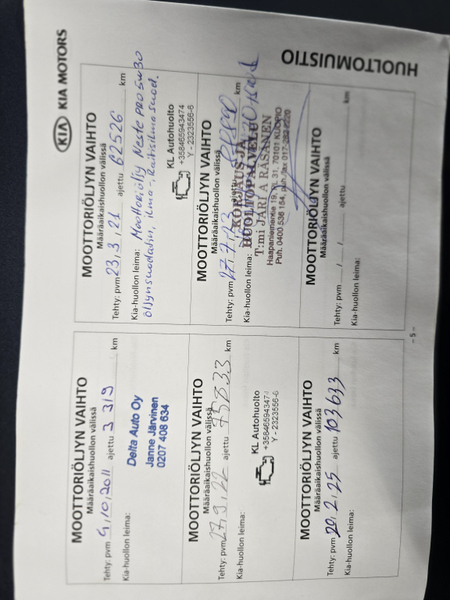 KIA KIA MOTORS
HUOLTOMUISTIO
MOOTTORIÖLJYN VAIHTO
Määräaikaishuollon välissä
Tehty: pvm 4,10,2011 ajettu 3 319 km
Kia-huollon leima:
Delta Auto Oy
Janne Järvinen
0207 408 634
MOOTTORIÖLJYN VAIHTO
Määräaikaishuollon välissä
Tehty: pvm 23,3,21 ajettu 62526 km
Kia-huollon leima: Moottoriöljy Neste pro 5w30
öljynsuodatin, ilma-, Raitisilmasuod.
KL Autohuolto
+358465943474
Y - 2323556-6
MOOTTORIÖLJYN VAIHTO
Määräaikaishuollon välissä
Tehty: pvm 27,9,22 ajettu 75833 km
Kia-huollon leima:
KL Autohuolto
+358465943474
Y - 2323556-6
MOOTTORIÖLJYN VAIHTO
Määräaikaishuollon välissä
Tehty: pvm ajettu km
Kia-huollon leima:
KORJAUS-JA
HUOLTOPALVELU
T:mi JARI A RÄSÄNEN
Haapaniementie 19, 70101 KUOPIO
Puh. 0400 536 164
MOOTTORIÖLJYN VAIHTO
Määräaikaishuollon välissä
Tehty: pvm 20,2,25 ajettu 103633 km
Kia-huollon leima:
MOOTTORIÖLJYN VAIHTO
Määräaikaishuollon välissä
Tehty: pvm / / ajettu km
Kia-huollon leima:
- 5 -